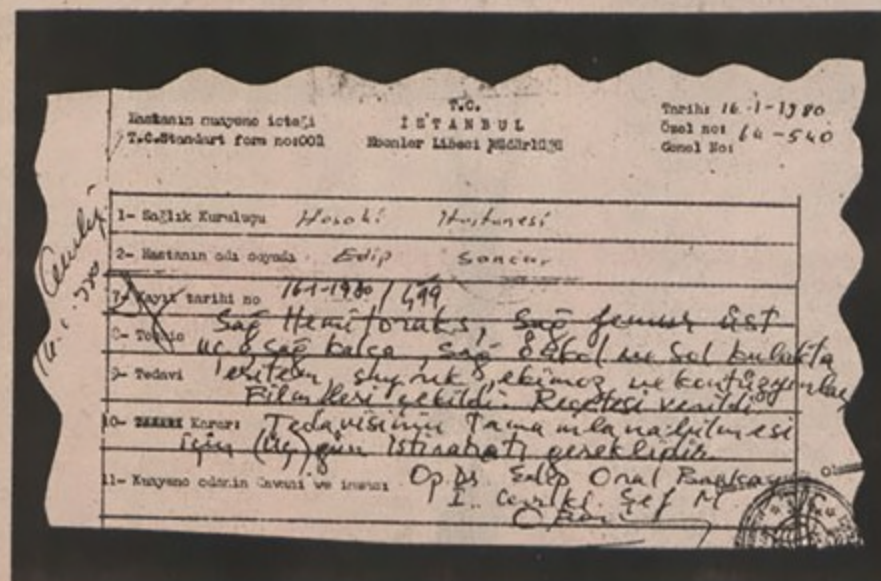 Hastanın muayene isteği
T.C.Standart form no:002
T.C.
İSTANBUL
Müdürlüğü
Tarih: 16-1-1980
Özel no: 64-540
Genel No:
1- Sağlık Kuruluşu Hastanesi
2- Hastanın adı soyadı Edip Sancar
7- Kayıt tarihi no 16-1-1980 / 499
8- Sağ Hemitoraks, Sağ femur üst
uç, Sağ kalça, Sağ önkol ve Sol kulakta
9- Tedavi eritem, sıyrık, ekimoz ve kontüzyonlar
Filmleri çekildi. Reçetesi verildi.
10- Karar: Tedavisinin Tamamlanabilmesi
için (üç) gün istirahati gereklidir.
11- Muayene edenin ve imzası Op Dr. Edip Oral
Şef M